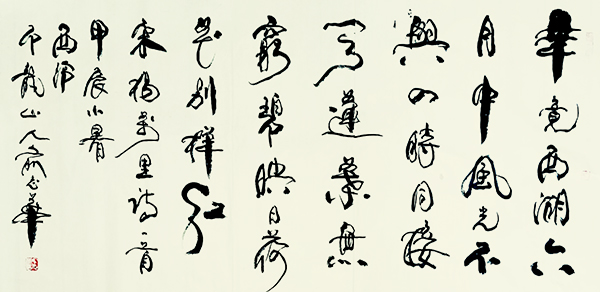 畢竟西湖六
月中風光不
與四時同接
天蓮葉無
窮碧映日荷
花別樣紅
宋楊萬里詩一首
甲辰小暑
西
龍山人俞華